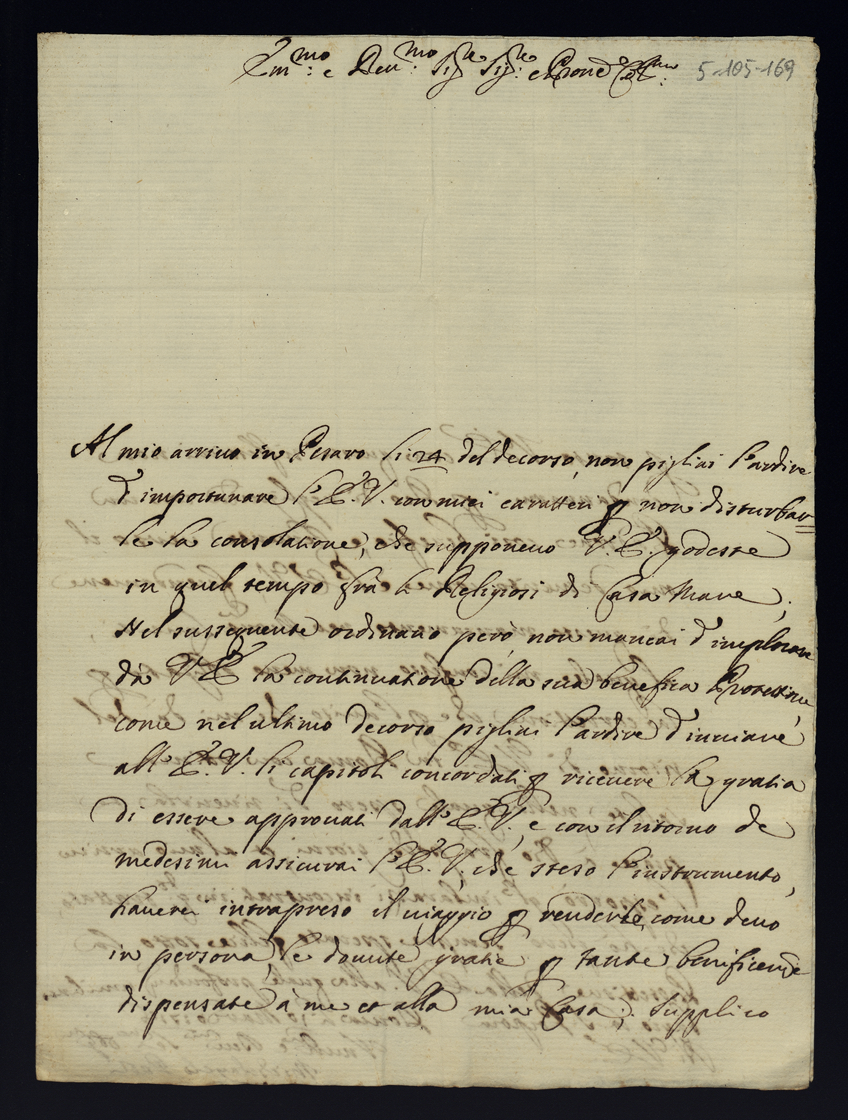 Em.mo: e Reu.mo: Sig.re Sig.re: e Prone Col.mo:
5-105-169
Al mio arriuo in Pesaro li 24 del decorso, non pigliai l'ardire
d'importunare l'E.V. con miei caratteri p non disturbar=
le la consolatione, che supponeuo V.E. godesse
in quel tempo frà li Religiosi di Casa Mare;
Nel susseguente ordinario però non mancai d'implorare
dà V.E. la continuatione della sua benefica Protettione
come nel ultimo decorso pigliai l'ardire d'inuiare
all'E.V. li capitoli concordati p riceuere la gratia
di essere approuati dall'E.V., e con il ritorno de
medesimi assicurai l'E.V., che steso l'instrumento,
hauerei intrapreso il uiaggio p renderle, come deuo
in persona, le douute gratie p tante benificenze
dispensate à me et alla mia Casa; Supplico